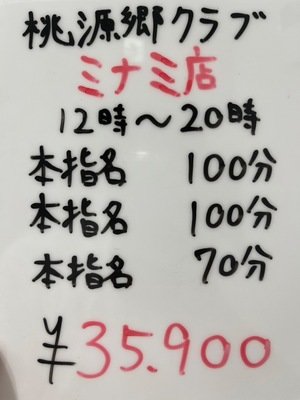 桃源郷クラブ
ミナミ店
12時〜20時
本指名 100分
本指名 100分
本指名 70分
¥35.900